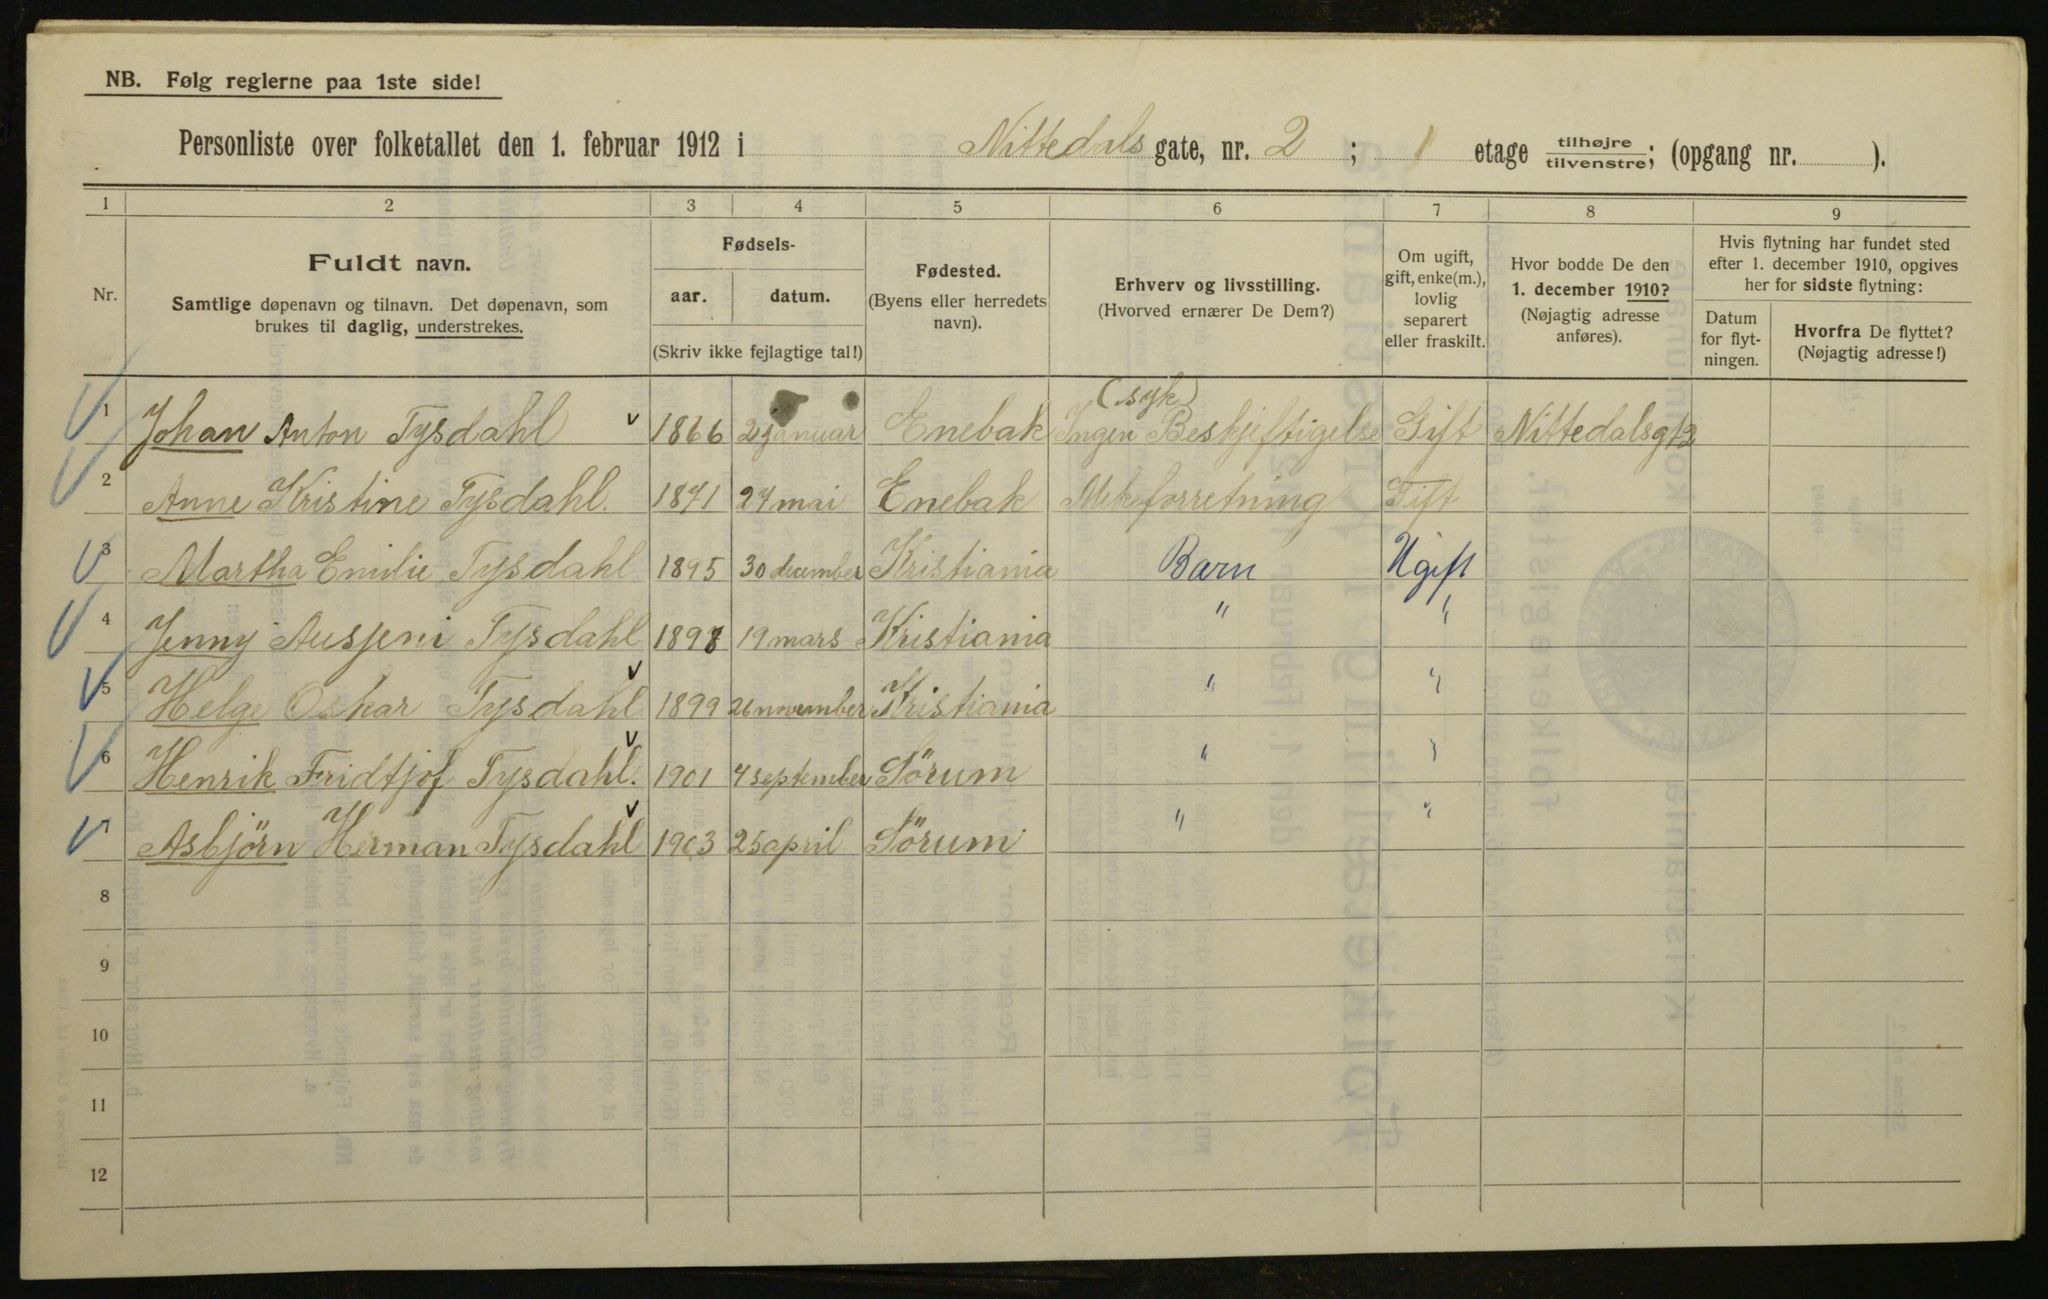 NB. Følg reglerne paa 1ste side!
Personliste over folketallet den 1. februar 1912 i Nittedals gate, nr. 2 ; 1 etage tilhøjre tilvenstre; (opgang nr. ).
1 2 3 4 5 6 7 8 9
Nr.
Fuldt navn.
Samtlige døpenavn og tilnavn. Det døpenavn, som
brukes til daglig, understrekes.
Fødsels-
aar. datum.
(Skriv ikke fejlagtige tal!)
Fødested.
(Byens eller herredets
navn).
Erhverv og livsstilling.
(Hvorved ernærer De Dem?)
Om ugift,
gift, enke(m.),
lovlig
separert
eller fraskilt.
Hvor bodde De den
1. december 1910?
(Nøjagtig adresse
anføres).
Hvis flytning har fundet sted
efter 1. december 1910, opgives
her for sidste flytning:
Datum
for flyt-
ningen.
Hvorfra De flyttet?
(Nøjagtig adresse!)
(syk)
1 Johan Anton Tysdahl 1866 2 januar Enebak Ingen Beskjeftigelse Gift Nittedalsgt 2
2 Anne Kristine Tysdahl. 1871 27 mai Enebak Melkeforretning Gift
3 Martha Emilie Tysdahl 1895 30 december Kristiania Barn Ugift
4 Jenny Tysdahl 1898 19 mars Kristiania " "
5 Helge Oskar Tysdahl 1899 26 november Kristiania " "
6 Henrik Fridtjof Tysdahl. 1901 4 september Sörum " "
7 Asbjörn Herman Tysdahl 1903 25 april Sörum " "
8
9
10
11
12